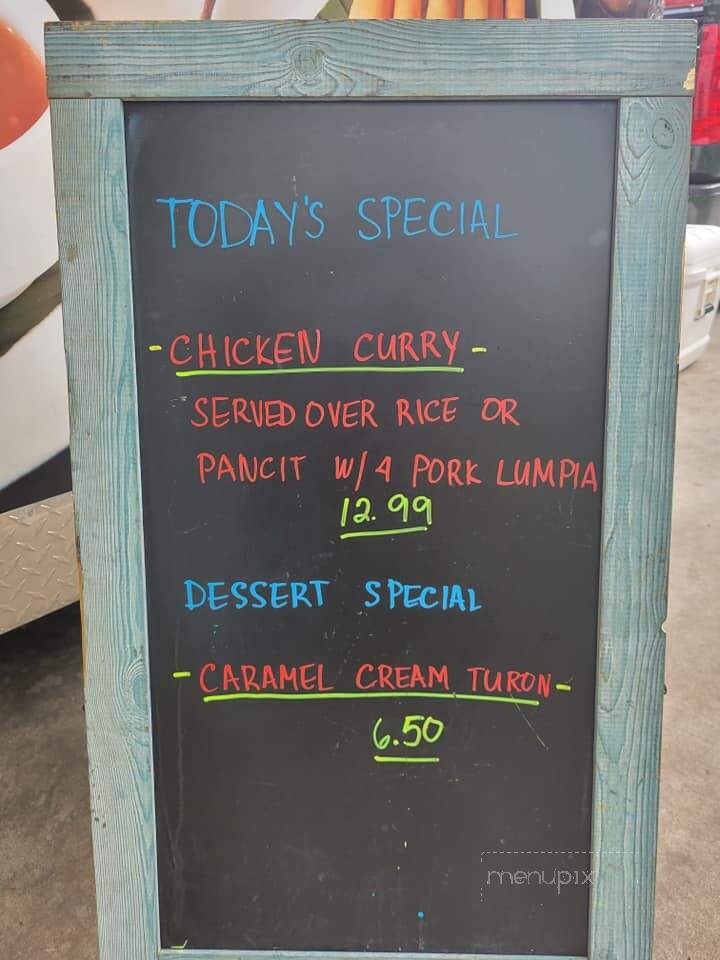 TODAY'S SPECIAL
- CHICKEN CURRY -
SERVED OVER RICE OR
PANCIT W/ 4 PORK LUMPIA
12.99
DESSERT SPECIAL
- CARAMEL CREAM TURON -
6.50
menupix